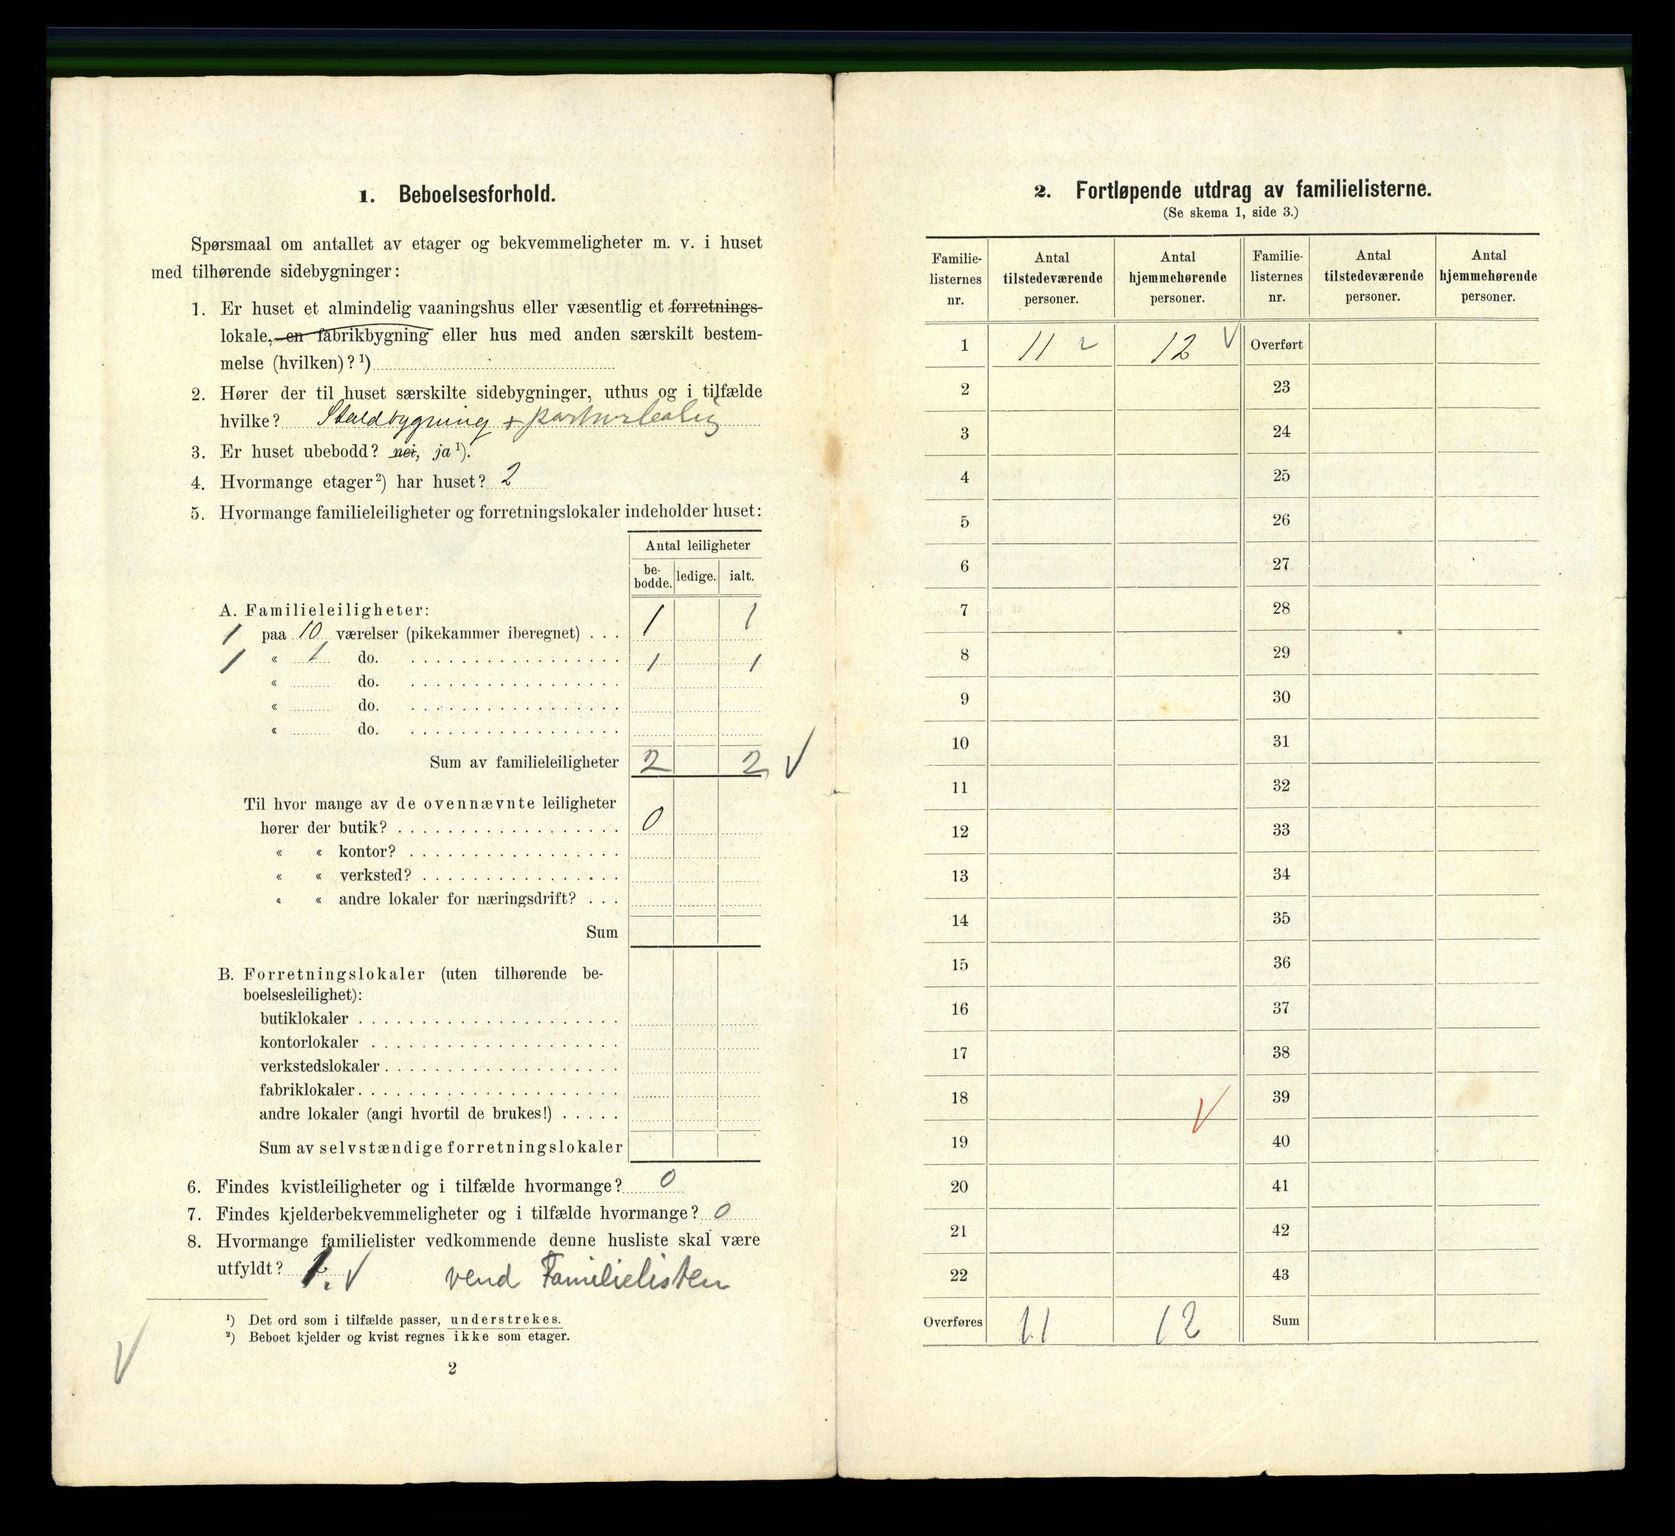 1. Beboelsesforhold.
Spørsmaal om antallet av etager og bekvemmeligheter m. v. i huset
med tilhørende sidebygninger:
1. Er huset et almindelig vaaningshus eller væsentlig et forretnings-
lokale, en fabrikbygning eller hus med anden særskilt bestem-
melse (hvilken)? ¹)
2. Hører der til huset særskilte sidebygninger, uthus og i tilfælde
hvilke? Staldbygning +
3. Er huset ubebodd? nei, ja ¹).
4. Hvormange etager ²) har huset? 2
5. Hvormange familieleiligheter og forretningslokaler indeholder huset:
Antal leiligheter
be-
bodde. ledige. ialt.
A. Familieleiligheter:
1 paa 10 værelser (pikekammer iberegnet) . . . 1 1
1 « 1 do. . . . . . . . . . . . . . . . . . 1 1
« do. . . . . . . . . . . . . . . . . .
« do. . . . . . . . . . . . . . . . . .
« do. . . . . . . . . . . . . . . . . .
Sum av familieleiligheter 2 2 V
Til hvor mange av de ovennævnte leiligheter
hører der butik? . . . . . . . . . . . . . . . . . . 0
« « kontor? . . . . . . . . . . . . . . . . .
« « verksted? . . . . . . . . . . . . . . . .
« « andre lokaler for næringsdrift? . . .
Sum
B. Forretningslokaler (uten tilhørende be-
boelsesleilighet):
butiklokaler . . . . . . . . . . . . . . . . . . . . .
kontorlokaler . . . . . . . . . . . . . . . . . . . .
verkstedslokaler . . . . . . . . . . . . . . . . . . .
fabriklokaler . . . . . . . . . . . . . . . . . . . . .
andre lokaler (angi hvortil de brukes!) . . . . .
Sum av selvstændige forretningslokaler
6. Findes kvistleiligheter og i tilfælde hvormange? 0
7. Findes kjelderbekvemmeligheter og i tilfælde hvormange? 0
8. Hvormange familielister vedkommende denne husliste skal være
utfyldt? 1. V vend Familielisten
¹) Det ord som i tilfælde passer, understrekes.
²) Beboet kjelder og kvist regnes ikke som etager.
V
2
2. Fortløpende utdrag av familielisterne.
(Se skema 1, side 3.)
Familie-
listernes
nr. Antal
tilstedeværende
personer. Antal
hjemmehørende
personer. Familie-
listernes
nr. Antal
tilstedeværende
personer. Antal
hjemmehørende
personer.
1 11 12 V Overført
2 23
3 24
4 25
5 26
6 27
7 28
8 29
9 30
10 31
11 32
12 33
13 34
14 35
15 36
16 37
17 38
18 V 39
19 40
20 41
21 42
22 43
Overføres 11 12 Sum